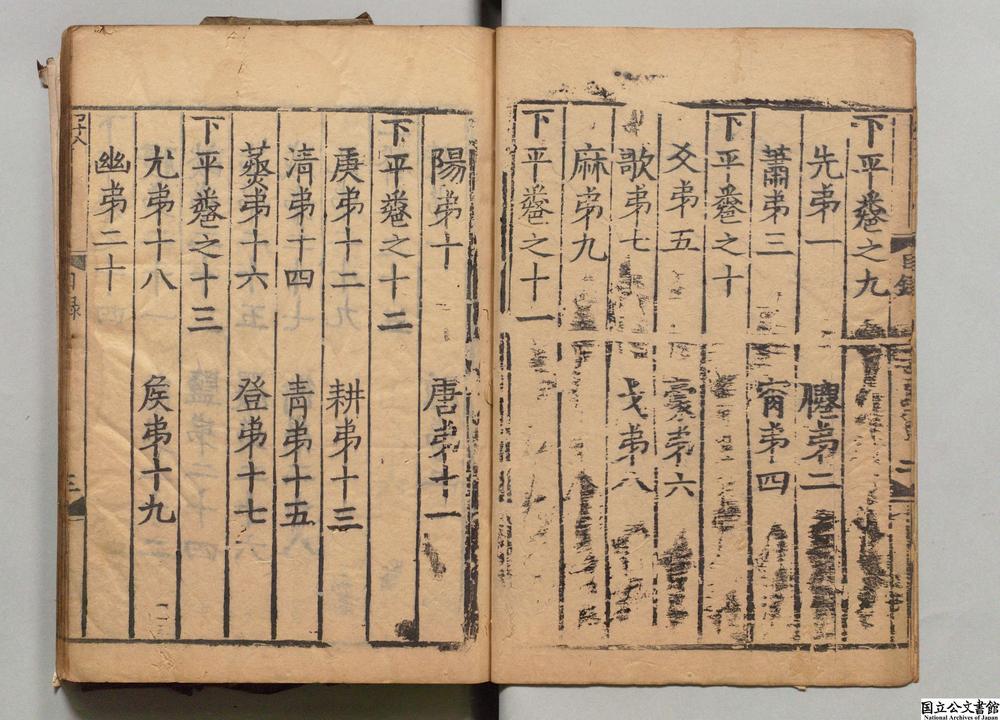 下平卷之九
先弟一 僊弟二
蕭弟三 宵弟四
下平卷之十
爻弟五 豪弟六
歌弟七 戈弟八
麻弟九
下平卷之十一
目錄
二
陽弟十 唐弟十一
下平卷之十二
庚弟十二 耕弟十三
清弟十四 青弟十五
蒸弟十六 登弟十七
下平卷之十三
尤弟十八 侯弟十九
幽弟二十
目録
三
国立公文書館
National Archives of Japan